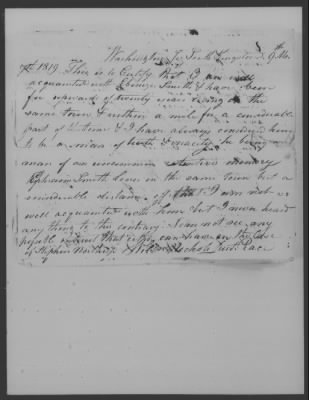 Washington So. South Kingstown 9th Mo.
7th 1819. This is to Certify that I am well
acquainted with Ebenezer Smith & have been
for upward of twenty years living in the
same town & within a mile for a considerable
part of the time & I have always considered him
to be a man of truth & veracity he being a
man of an uncommon memory
Ephraim Smith lives in the same town but a
considerable distance of that I am not so
well acquainted with him but I never heard
any thing to the contrary I can not see any
that either can have in the Case
of Stephen Northup Just. Peace